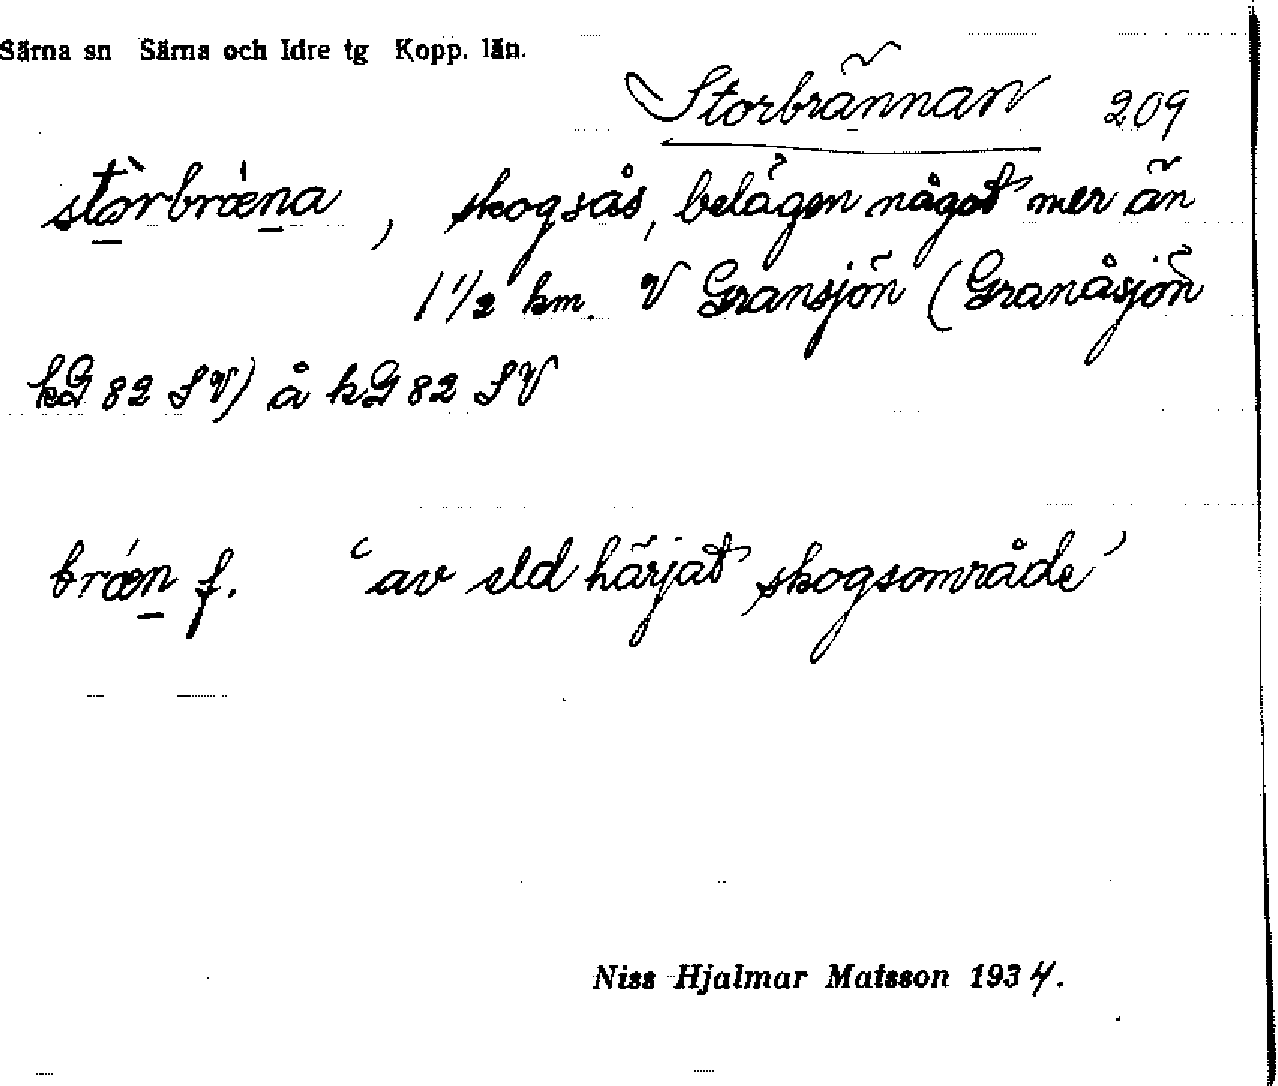 Särna sn Särna och Idre tg Kopp. län.
Storbrännan 209
stòrbrǽna, skogsås, belägen något mer än
1 1/2 km. V Gransjön (Granåsjön
kG 82 SV) å kG 82 SV
brǽn f. ‘av eld härjat skogsområde’
Niss Hjalmar Matsson 1934.